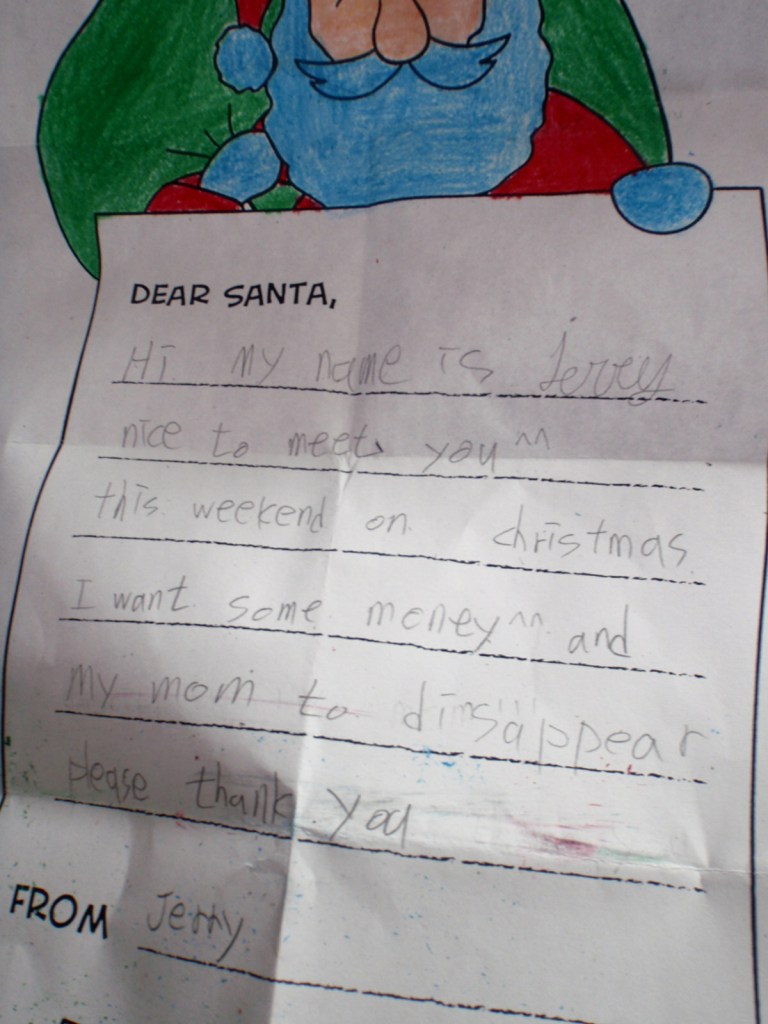 DEAR SANTA,
Hi my name is Jerry
nice to meet you^^
this weekend on christmas
I want some money^^ and
my mom to dinsappear
please thank you
FROM Jerry